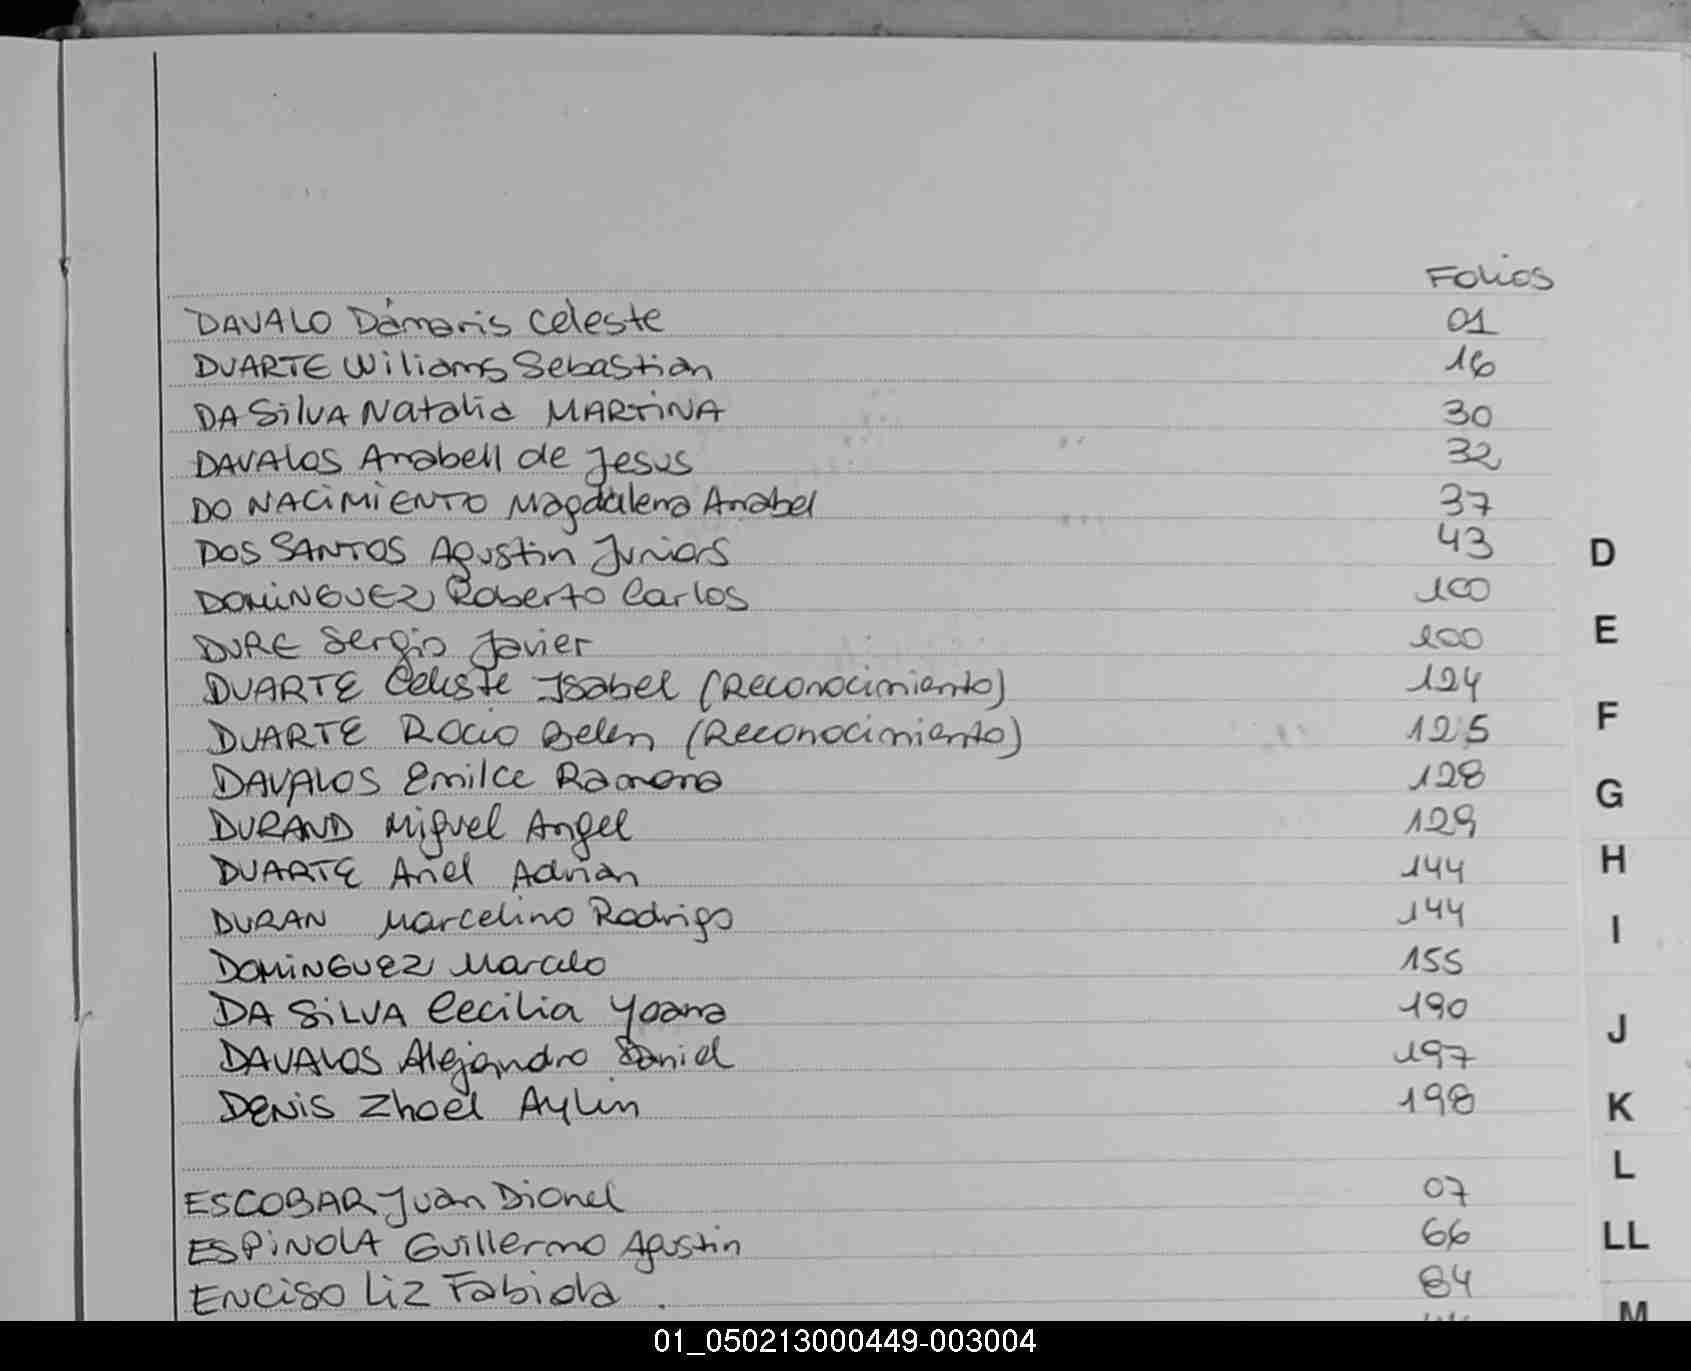 Folios
DAVALO Dámaris Celeste 01
DUARTE Wiliams Sebastian 16
DA SiLVA Natalia MARTiNA 30
DAVALOS Anabell de Jesus 32
DO NACiMiENTO Magdalena Anabel 37
DOS SANTOS Agustin Juniors 43
D
DOMiNGUEZ Roberto Carlos 100
DURE Sergio Javier 100
E
DUARTE Celeste Isabel (Reconocimiento) 124
F
DUARTE Rocio Belen (Reconocimiento) 125
DAVALOS Emilce Ramona 128
G
DURAND Miguel Angel 129
DUARTE Ariel Adrian 144
H
DURAN Marcelino Rodrigo 144
I
DOMiNGUEZ Marcelo 155
DA SiLVA Cecilia Yoana 190
J
DAVALOS Alejandro Daniel 197
DENiS Zhoel Aylin 198
K
L
ESCOBAR Juan Dionel 07
ESPiNOLA Guillermo Agustin 66
LL
ENCiSO Liz Fabiola 84
M
01_050213000449-003004